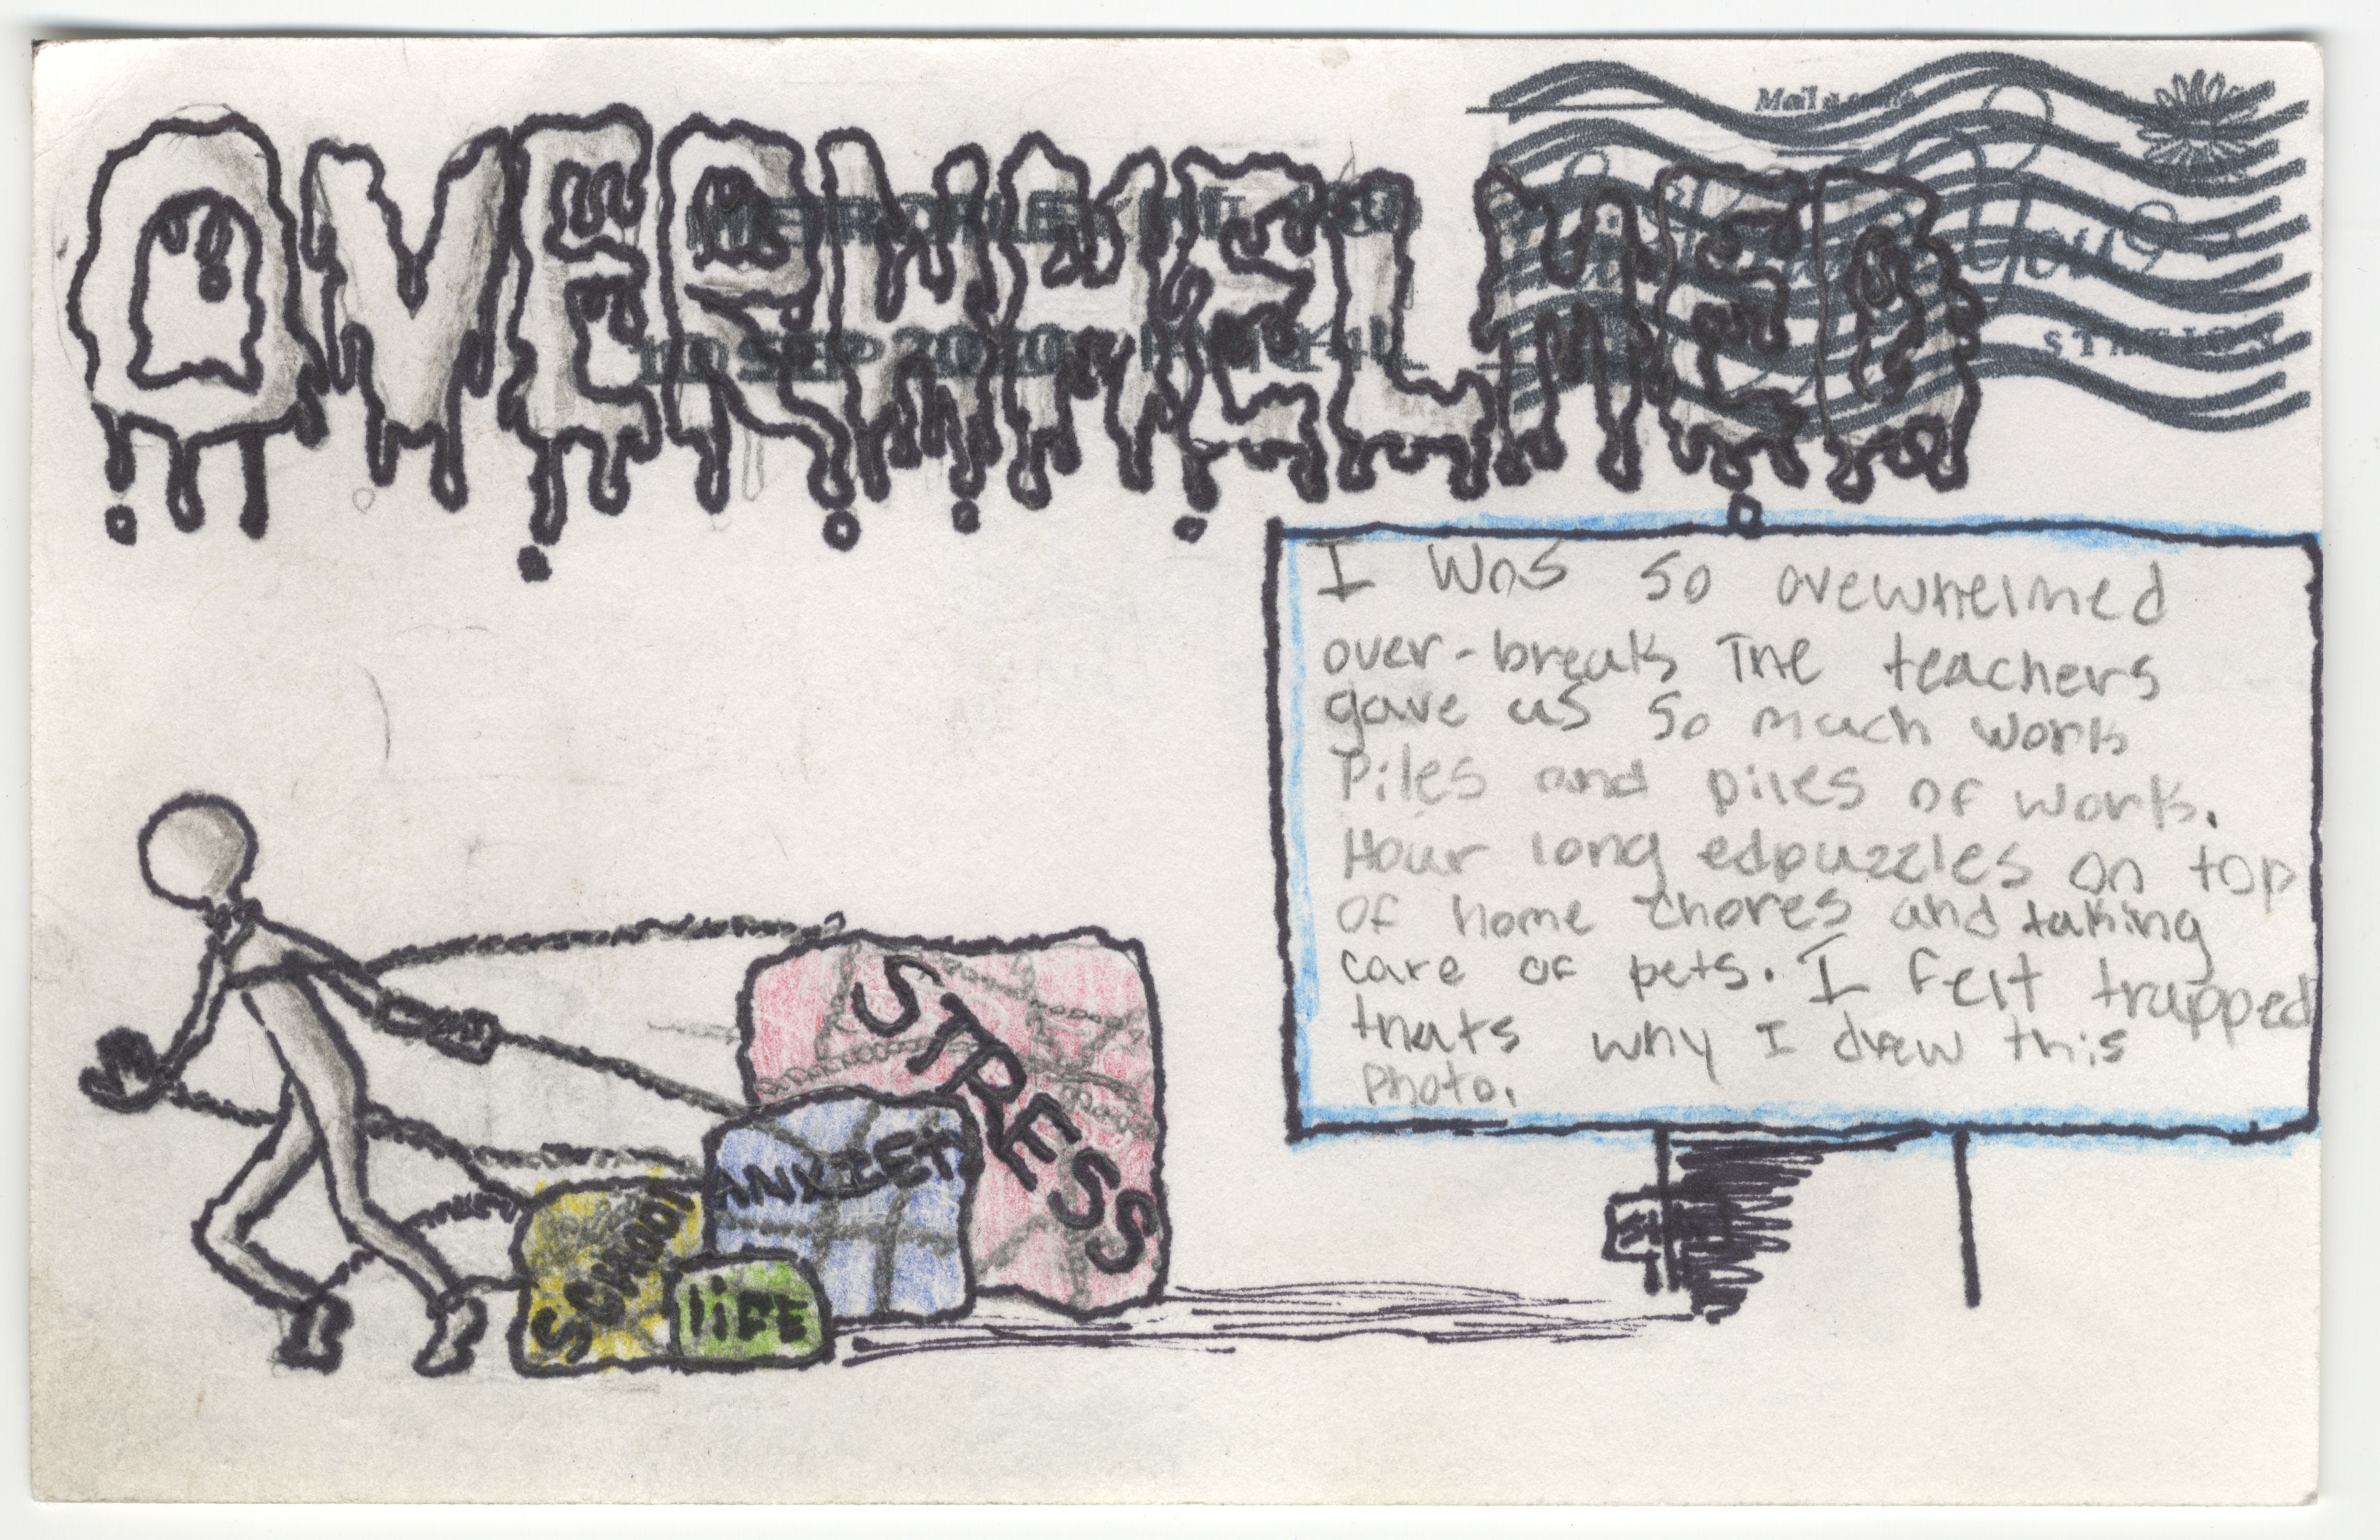 OVERWHELMED
SEP 2020
I was so ovewhelmed
over-break The teachers
gave us so much work
Piles and piles of work.
Hour long edpuzzles on top
of home chores and taking
care of pets. I felt trapped
thats why I drew this
photo.
STRESS
ANXIET
SCHOOL
liFE